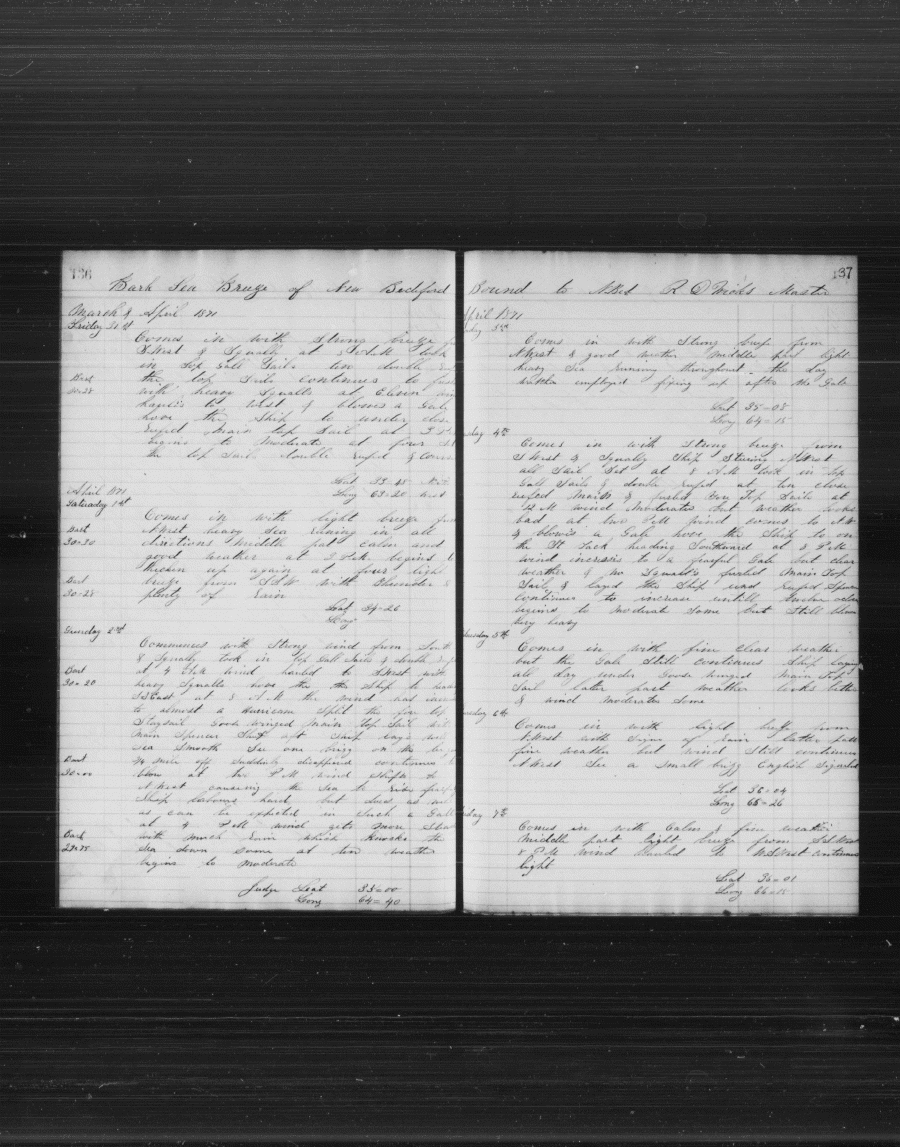 136
Bark Sea Breeze of New Bedford
March & April 1871
Friday 31st
Comes in with strong breeze
S West & Squally at 8 A.M. took
in top Gall Sails ten double
the top Sails continues to
Bart
30=28
with heavy Squalls at Eleven
hauls to West & blowes a Gale
hove the Ship to under close
reefed Main top Sail at
begins to Moderate at four
the top Sails double reefed &
Lat 33=48
Long 63=20 West
April 1871
Saturday 1st
Comes in with light breeze
N West heavy Sea runing in all
Bart
30=30
directions Middle part Calm and
good weather at 2 P.M. begins
thicken up again at four light
Bart
30=28
breeze from SSW with thunder &
plenty of rain
Lat 34=26
Long
Sunday 2nd
Commences with Strong wind from
& Squally took in top Gall Sails & double
Bart
30=20
at 4 A.M. wind hauled to S West with
heavy Squalls hove the the Ship to
SSEast at 8 A.M. the wind had
to almost a hurricane Split the fore top
Staysail Goose winged Main top Sail
Main Spencer Ship
Sea Smooth See one brigg on the
Bart
30=00
1/4 mile off Suddenly disappeard continues
blow at two P.M. wind Shifts to
N West causing the Sea to
Ship labours hard but
as can be expected in Such a Gale
at 4 P.M. wind gets more
Bart
29=88
with much rain which Knocks the
Sea down Some at ten weather
begins to moderate
Judge Lat 33=00
Long 64=40
137
Bound to N Bed R D Wicks Master
April 1871
3rd
Comes in with Strong breeze from
N West & good weather Middle part light
heavy Sea running throughout the day
watch employed fixing up after the Gale
Lat 35=08
Long 64=15
4th
Comes in with Strong breeze from
S West & Squally Ship Stering N West
all Sail Set at 8 A.M. took in top
Gall Sails & double reefed at ten close
reefed Main & furled Fore Top Sails at
12 M wind Moderates but weather looks
bad at two P.M. wind comes to N W
& blowes a Gale hove the Ship to on
the St Tack heading Southward at 8 P.M.
wind increases to a fearful Gale but clear
weather & no Squalls furled Main Top
Sail & layed the Ship under reefed
continues to increase untill twelve
begins to moderate Some but Still blows
very heavy
5th
Comes in with fine clear weather
but the Gale Still continues Ship laying
all day under Goose winged Main Top
Sail later part weather looks better
& wind moderates Some
6th
Comes in with light breeze from
N West with Signs of rain latter part
fine weather but wind Still continues
N West See a Small brigg English
Lat 36=04
Long 65=26
7th
Comes in with Calm & fine weather
Middle part light breeze from
8 P.M. wind hauled to continues
light
Lat 36=01
Long 66=18